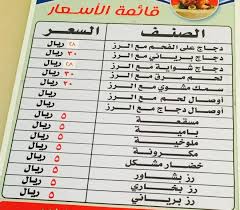 قائمة الأسعار
الصنف السعر
دجاج على الفحم مع الرز ٢٨ ريال
دجاج برياني مع الرز ٣٠ ريال
دجاج شواية مع الرز ٢٨ ريال
لحم مرق مع الرز ٣٠ ريال
سمك مشوي مع الرز ريال
أوصال لحم مع الرز ريال
أوصال دجاج مع الرز ريال
مسقعة ٥ ريال
بامية ٥ ريال
ملوخية ٥ ريال
مكرونة ٥ ريال
خضار مشكل ٥ ريال
رز بشاور ٥ ريال
رز بخاري ٥ ريال
رز برياني ٥ ريال